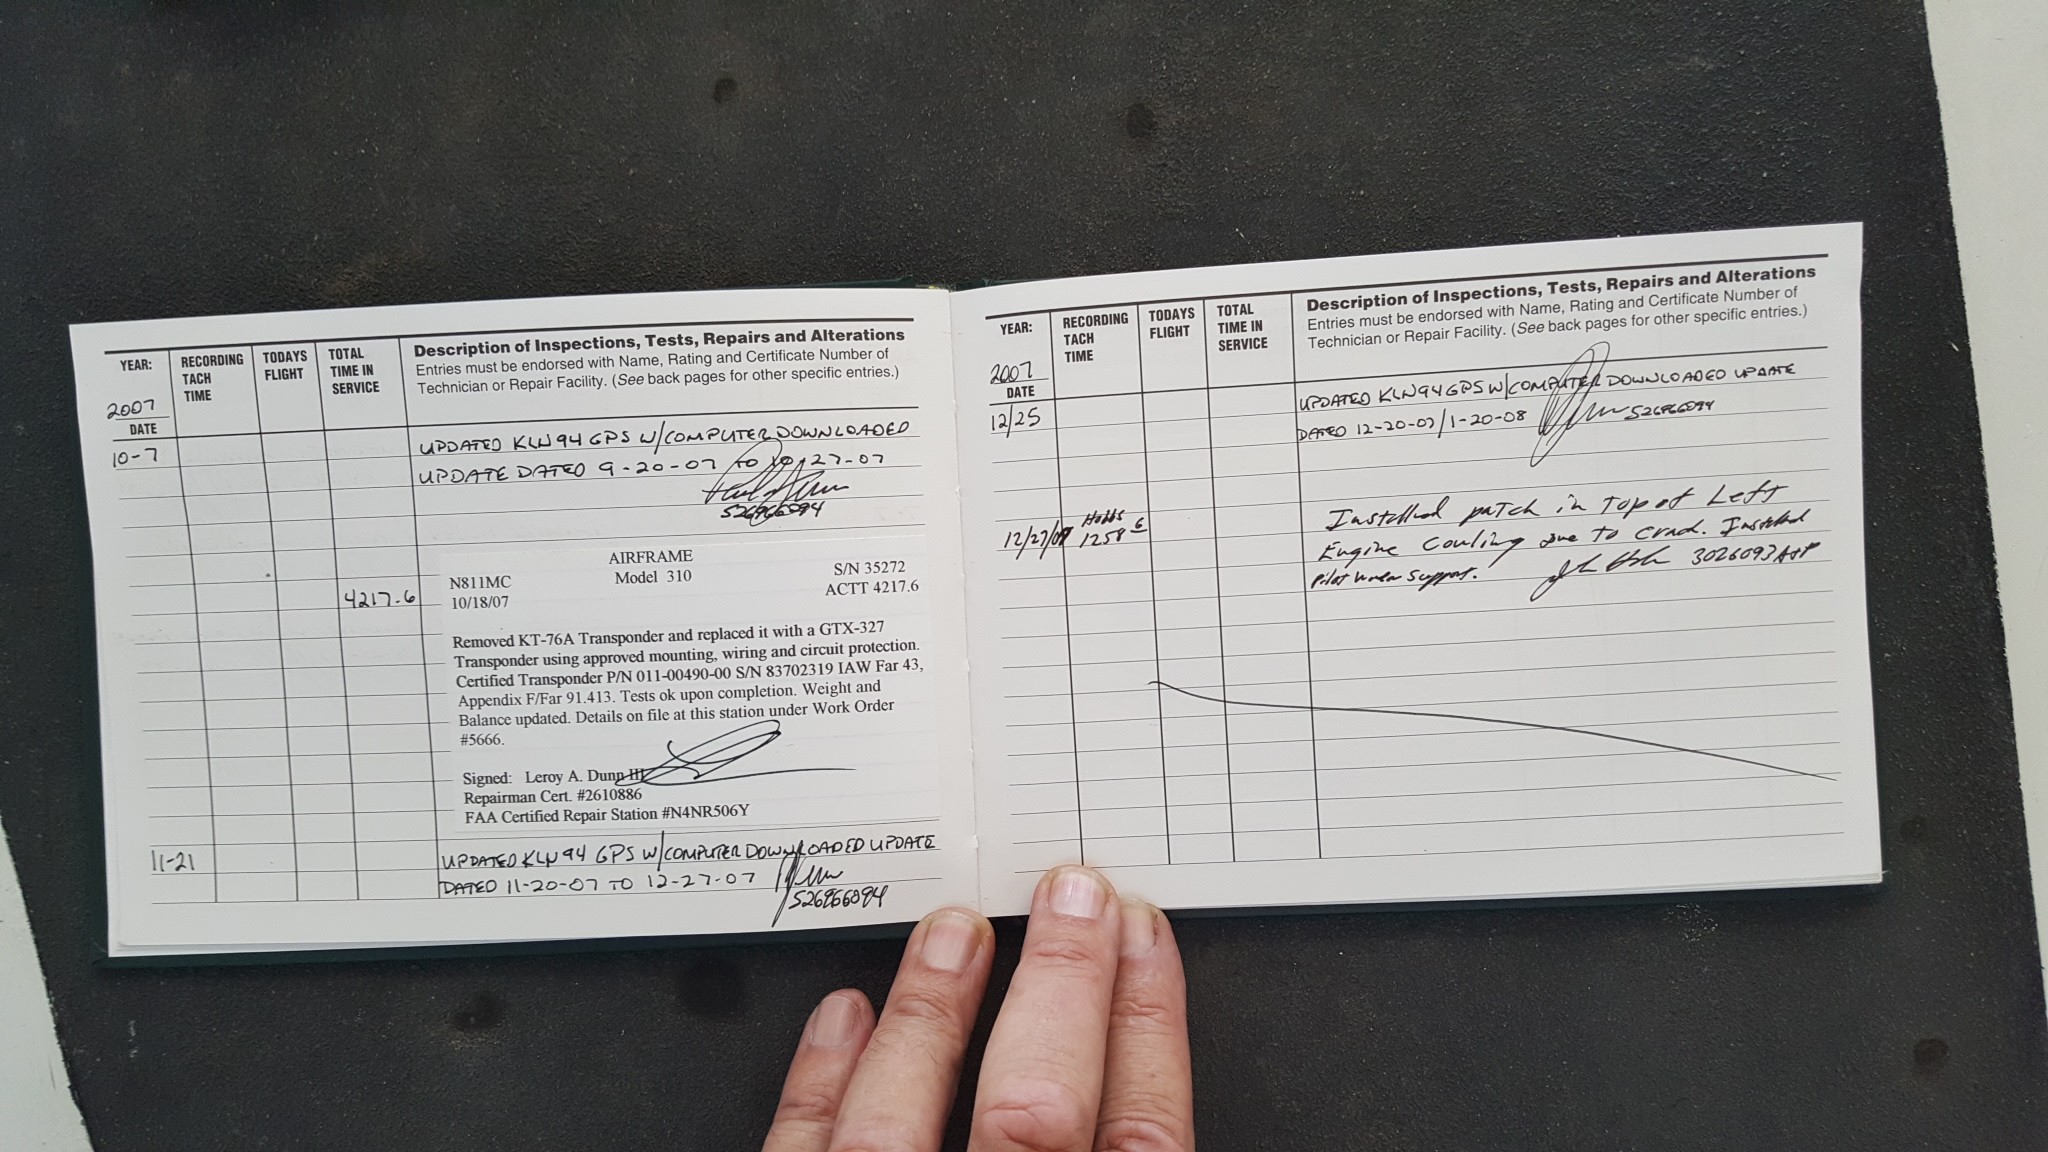 YEAR:
2007
DATE
RECORDING
TACH
TIME
TODAYS
FLIGHT
TOTAL
TIME IN
SERVICE
Description of Inspections, Tests, Repairs and Alterations
Entries must be endorsed with Name, Rating and Certificate Number of
Technician or Repair Facility. (See back pages for other specific entries.)
10-7
UPDATED KLN94 GPS W/COMPUTER DOWNLOADED
UPDATE DATED 9-20-07 TO 10-27-07
526966094
4217.6
AIRFRAME
N811MC Model 310 S/N 35272
10/18/07 ACTT 4217.6
Removed KT-76A Transponder and replaced it with a GTX-327
Transponder using approved mounting, wiring and circuit protection.
Certified Transponder P/N 011-00490-00 S/N 83702319 IAW Far 43,
Appendix F/Far 91.413. Tests ok upon completion. Weight and
Balance updated. Details on file at this station under Work Order
#5666.
Signed: Leroy A. Dunn III
Repairman Cert. #2610886
FAA Certified Repair Station #N4NR506Y
11-21
UPDATED KLN94 GPS W/COMPUTER DOWNLOADED UPDATE
DATED 11-20-07 TO 12-27-07
526966094
YEAR:
2007
DATE
RECORDING
TACH
TIME
TODAYS
FLIGHT
TOTAL
TIME IN
SERVICE
Description of Inspections, Tests, Repairs and Alterations
Entries must be endorsed with Name, Rating and Certificate Number of
Technician or Repair Facility. (See back pages for other specific entries.)
12/25
UPDATED KLN94 GPS W/COMPUTER DOWNLOADED UPDATE
DATED 12-20-07/1-20-08 526966094
12/27/07 Hobbs
1258 6
Installed patch in top of Left
Engine Couling due to crack. Installed
Pilot support. 3026093 A&P